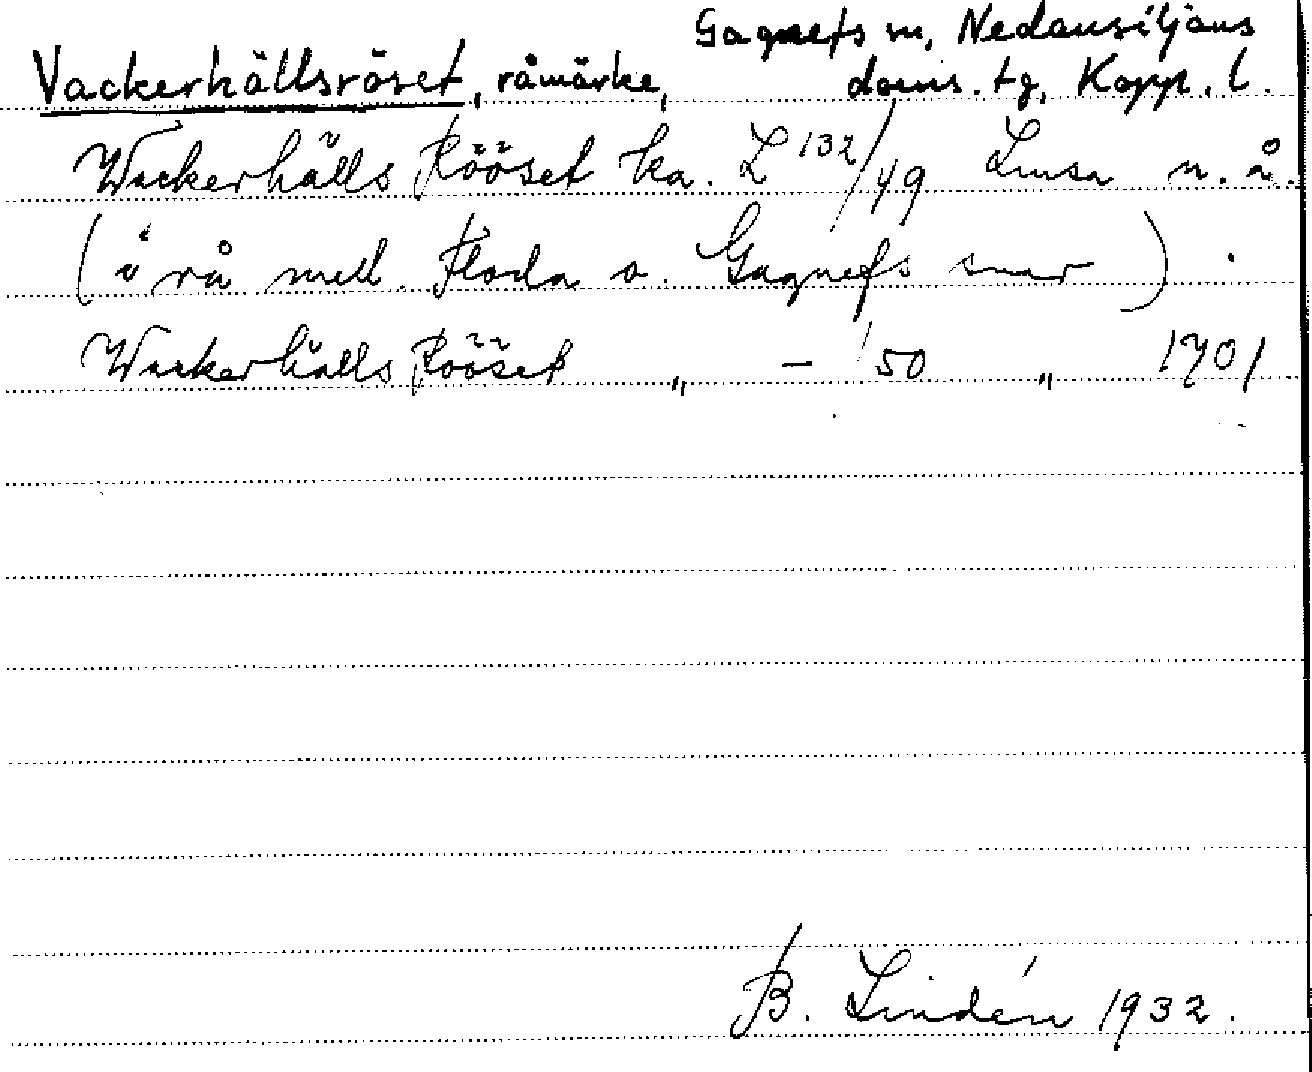 Gagnefs sn, Nedansiljans
Vackerhällsröset, råmärke, doms. tg, Kopp. l.
Wackerhälls Rööset ka. L 132/49 Lmsa n. å.
(i rå mell. Floda o. Gagnefs snar)
Wackerhälls Rööset „ – 50 „ 1701
B. Lindén 1932.